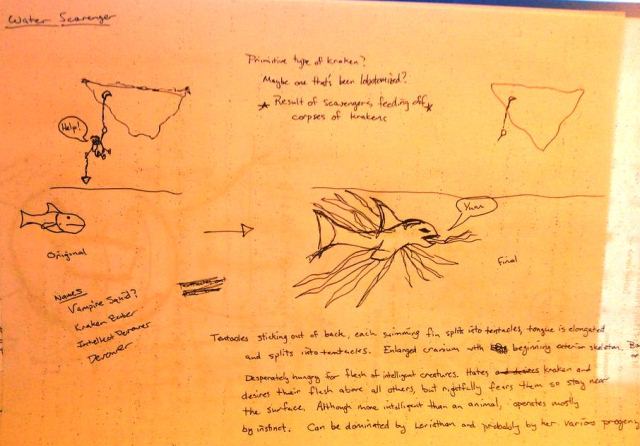 Water Scavenger
Primitive type of Kraken?
Maybe one that's been lobotomized?
* Result of scavengers feeding off *
corpses of Krakens
Help!
Yum
Original
Final
Names
Vampire Squid?
Kraken Eater
Intellect Devourer
Devourer
Tentacles sticking out of back, each swimming fin splits into tentacles, tongue is elongated
and splits into tentacles. Enlarged cranium with beginning exterior skeleton.
Desperately hungry for flesh of intelligent creatures. Hates kraken and
desires their flesh above all others, but rightfully fears them so stay near
the surface. Although more intelligent than an animal, operates mostly
by instinct. Can be dominated by Leviathan and probably by her various progeny